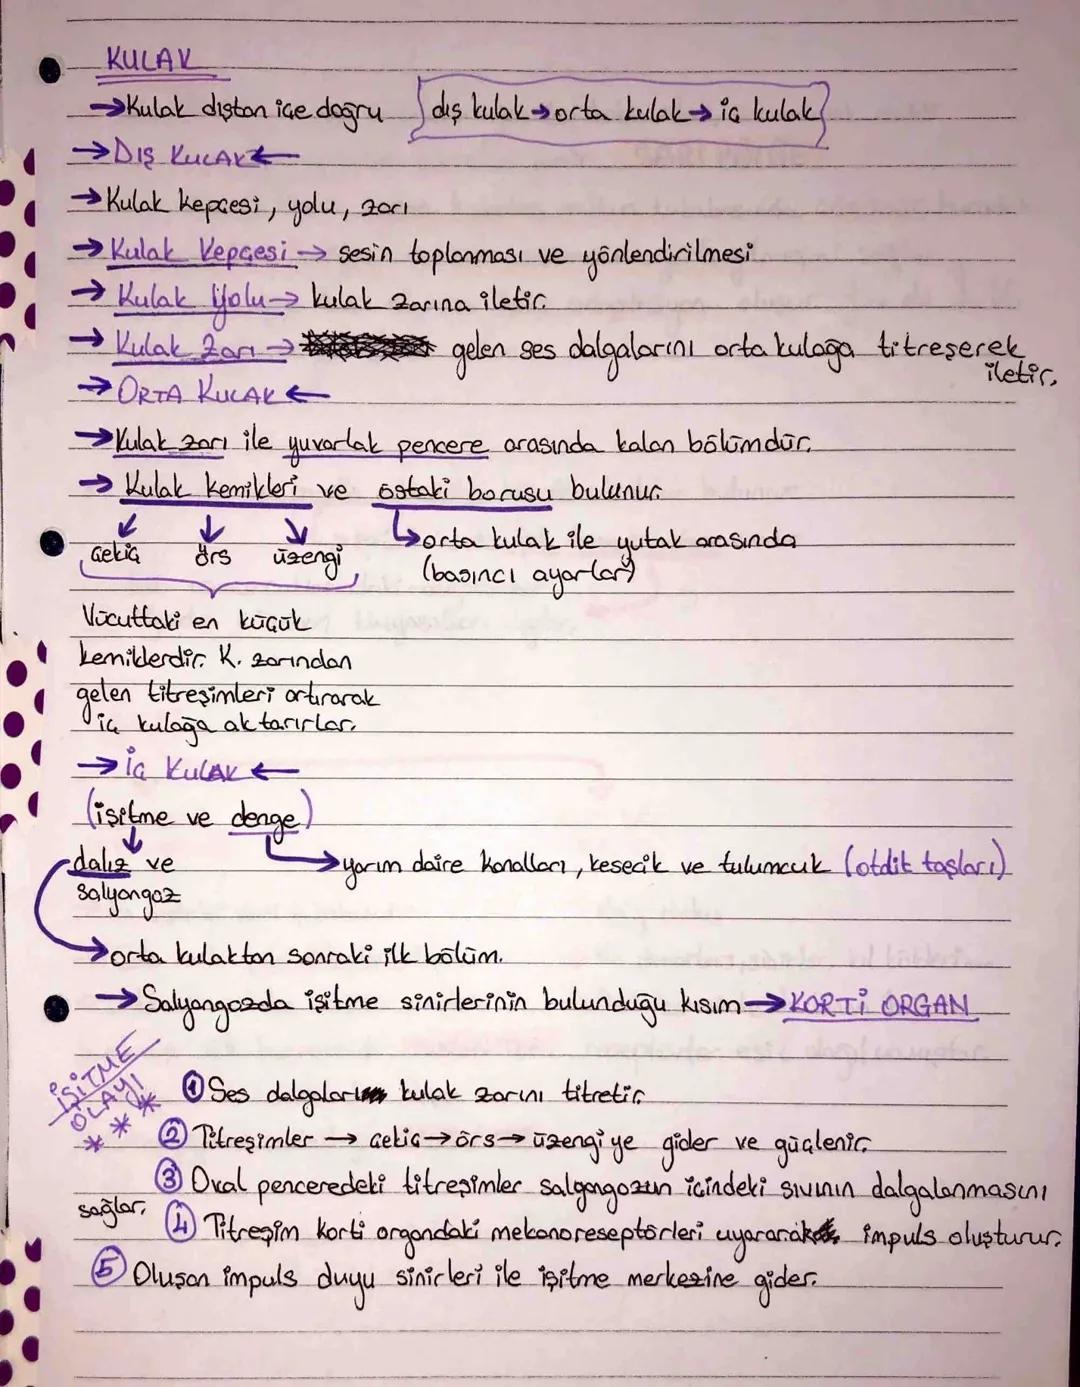 KULAK
→Kulak dıştan içe doğru dış kulak→orta kulak→iç kulak
→DIŞ KULAK←
→Kulak kepçesi, yolu, zarı
→Kulak Kepçesi→ sesin toplanması ve yönlendirilmesi
→ Kulak Yolu→ kulak zarına iletir.
→ Kulak Zarı→ gelen ses dalgalarını orta kulağa titreşerek
iletir.
→ORTA KULAK←
→Kulak zarı ile yuvarlak pencere arasında kalan bölümdür.
→ Kulak kemikleri ve östaki borusu bulunur.
çekiç örs üzengi →orta kulak ile yutak arasında
(basıncı ayarlar)
Vücuttaki en küçük
kemiklerdir. K. zarından
gelen titreşimleri artırarak
iç kulağa aktarırlar.
→İÇ KULAK←
(işitme ve denge)
dalız ve →yarım daire kanalları, kesecik ve tulumcuk (otdit taşları)
salyangoz
→orta kulaktan sonraki ilk bölüm.
→Salyangozda işitme sinirlerinin bulunduğu kısım→KORTİ ORGAN
İŞİTME
OLAYI
***
① Ses dalgaları kulak zarını titretir.
② Titreşimler → çekiç→örs→üzengi'ye gider ve güçlenir.
③ Oval penceredeki titreşimler salyangozun içindeki sıvının dalgalanmasını
sağlar.
④ Titreşim korti organdaki mekanoreseptörleri uyararak impuls oluşturur.
⑤ Oluşan impuls duyu sinirleri ile işitme merkezine gider.